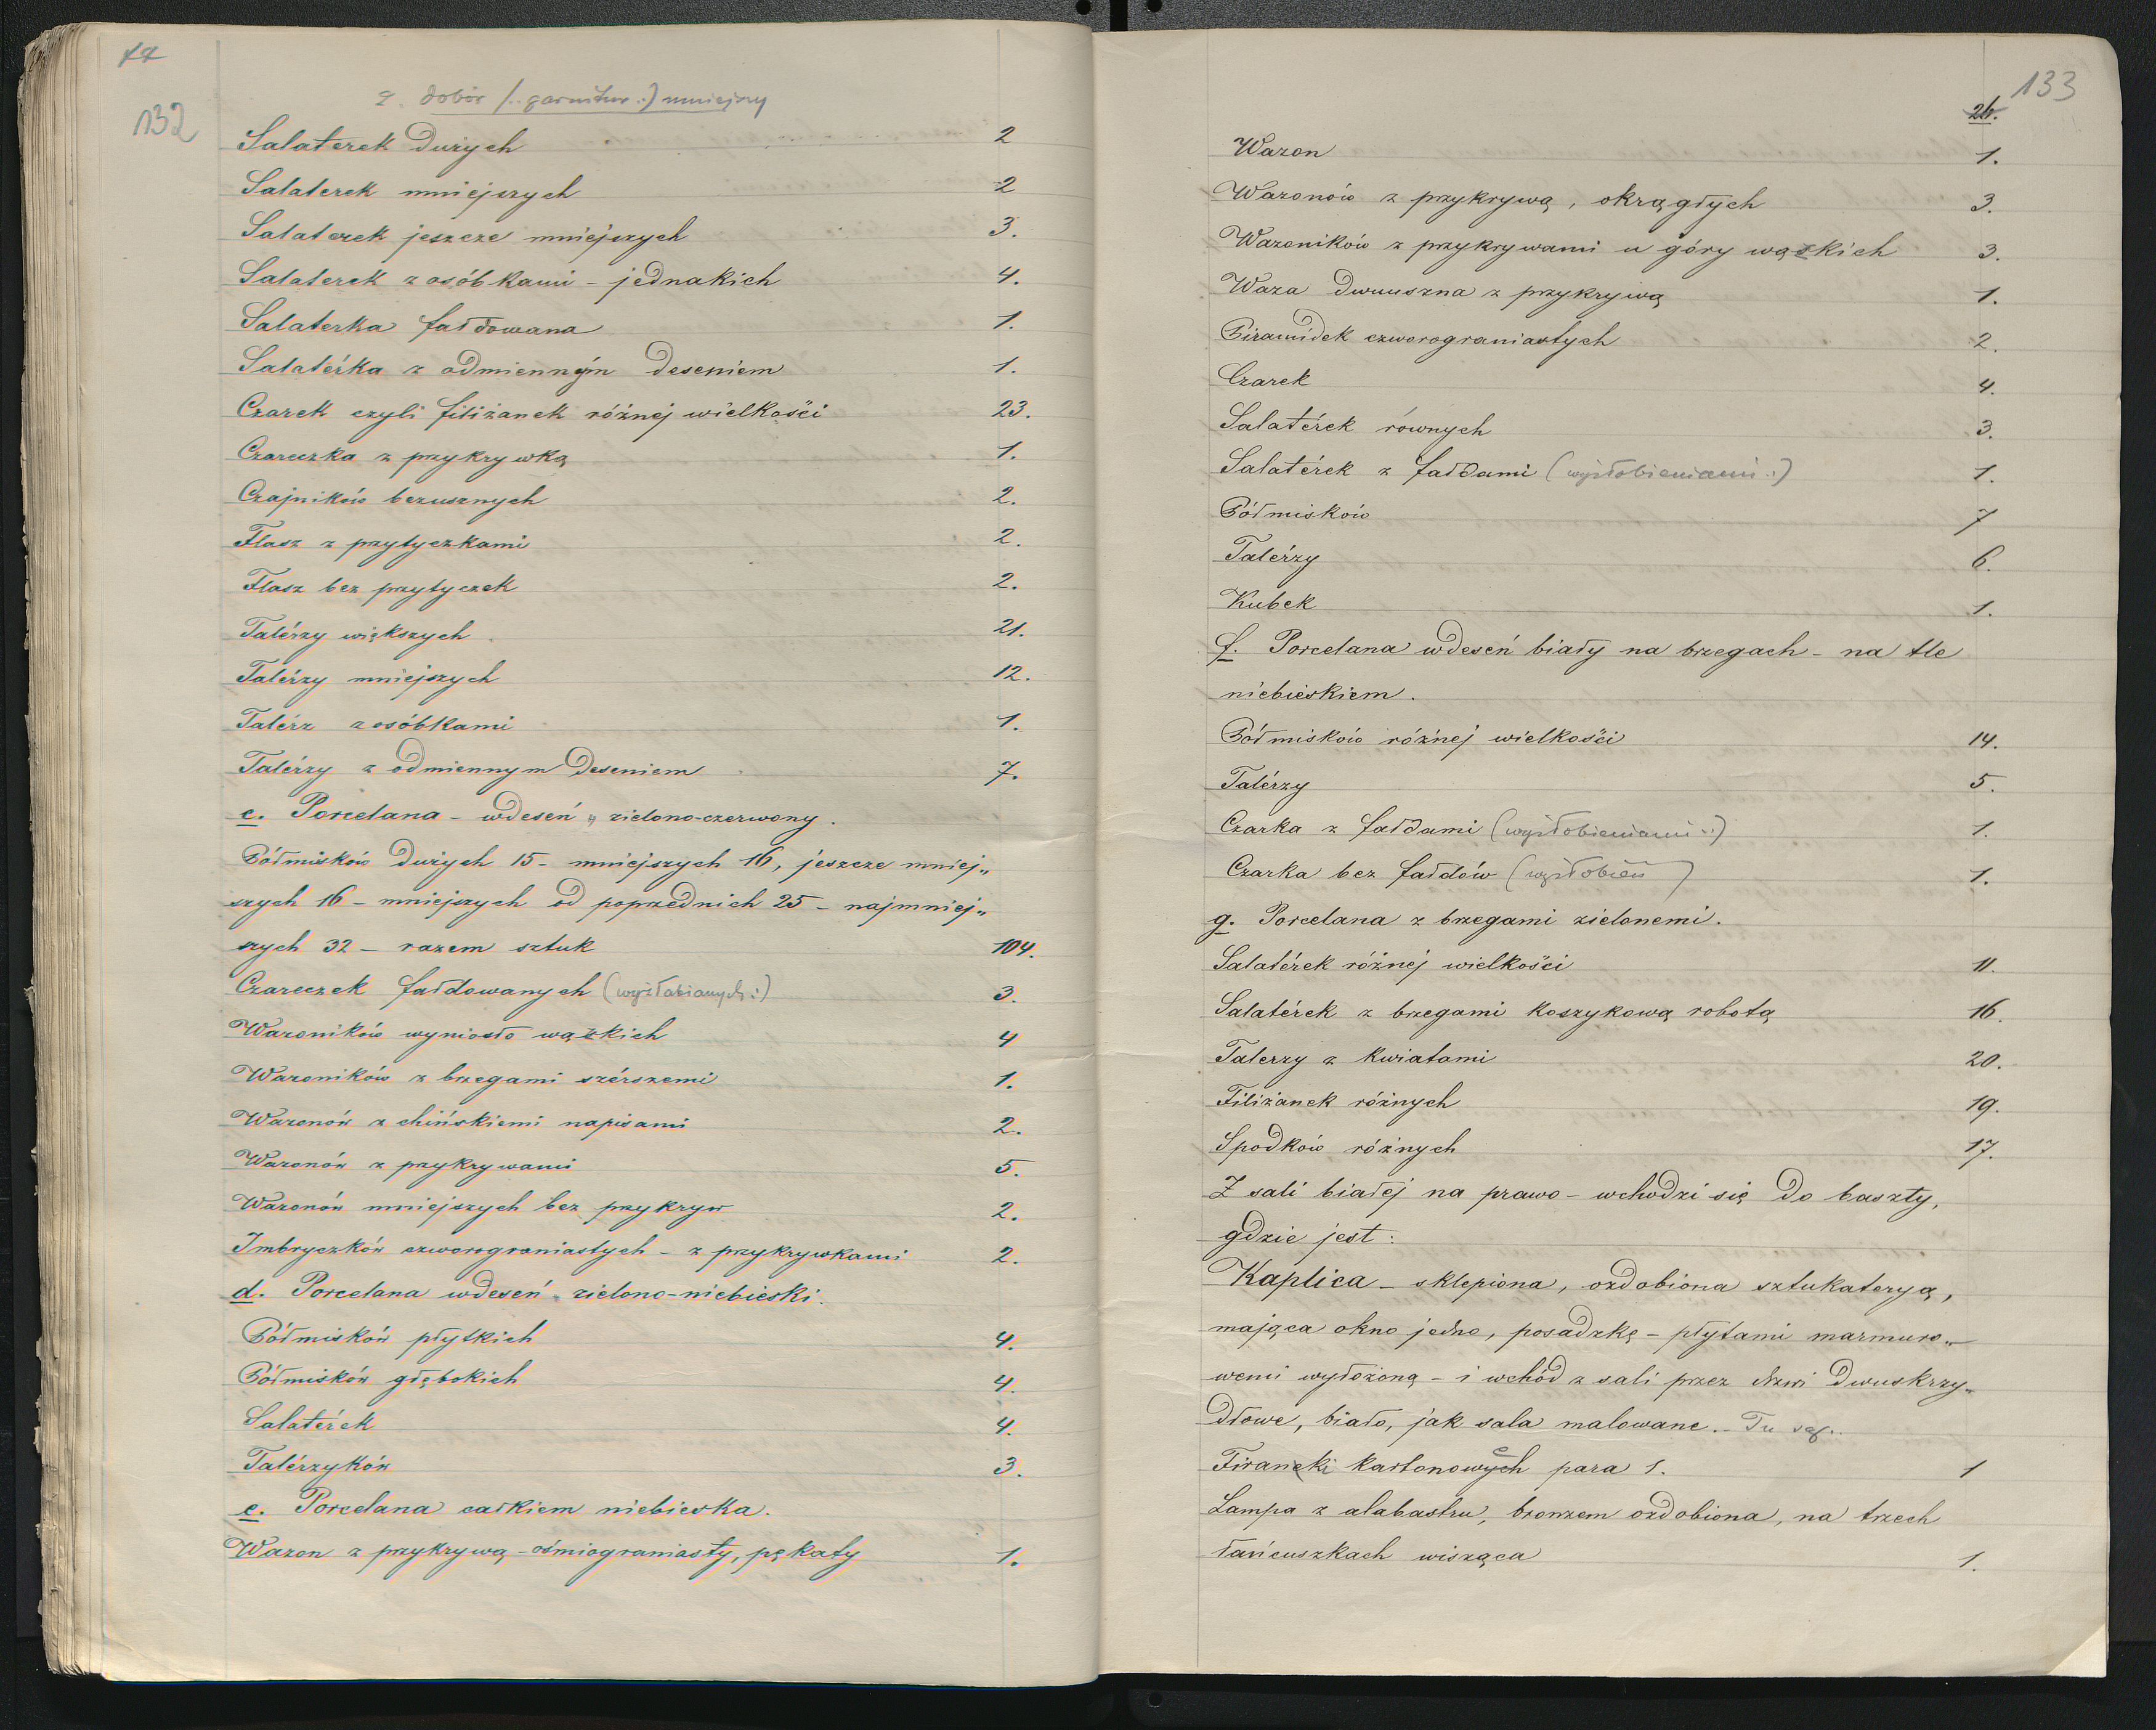 132
2. dobór /: garnitur :) mniejszy
Salaterek dużych 2
Salaterek mniejszych 2
Salaterek jeszcze mniejszych 3.
Salaterek z osóbkami - jednakich 4.
Salaterka fałdowana 1.
Salatérka z odmiennym deseniem 1.
Czarek czyli filiżanek różnej wielkości 23.
Czareczka z przykrywką 1.
Czajników bezusznych 2.
Flasz z przytyczkami 2.
Flasz bez przytyczek 2.
Talérzy większych 21.
Talérzy mniejszych 12.
Talérz z osóbkami 1.
Talérzy z odmiennym deseniem 7.
c. Porcelana - wdeseń „ zielono-czerwony.
Półmisków dużych 15 - mniejszych 16, jeszcze mniej„
szych 16 - mniejszych od poprzednich 25 - najmniej„
szych 32 - razem sztuk 104.
Czareczek fałdowanych (wyżłabianych :) 3.
Wazoników wyniosło wązkich 4
Wazoników z brzegami szérszemi 1.
Wazonów z chińskiemi napisami 2.
Wazonów z przykrywami 5.
Wazonów mniejszych bez przykryw 2.
Imbryczków czworograniastych - z przykrywkami 2.
d. Porcelana wdeseń „ zielono-niebieski.
Półmisków płytkich 4.
Półmisków głębokich 4.
Salatérek 4.
Talérzyków 3.
e. Porcelana całkiem niebieska.
Wazon z przykrywą - ośmiograniasty, pękaty 1.
133
26.
Wazon 1.
Wazonów z przykrywą, okrągłych 3.
Wazoników z przykrywami u góry wązkich 3.
Waza dwuuszna z przykrywą 1.
Piramidek czworograniastych 2.
Czarek 4.
Salatérek równych 3.
Salatérek z fałdami (wyżłobieniami :) 1.
Półmisków 7
Talérzy 6.
Kubek 1.
f. Porcelana wdeseń biały na brzegach - na tle
niebieskiem.
Półmisków różnej wielkości 14.
Talérzy 5.
Czarka z fałdami (wyżłobieniami :) 1.
Czarka bez fałdów (wyżłobień) 1.
g. Porcelana z brzegami zielonemi.
Salatérek różnej wielkości 11.
Salatérek z brzegami koszykową robotą 16.
Talerzy z kwiatami 20.
Filiżanek różnych 19.
Spodków różnych 17.
Z sali białej na prawo - wchodzi się do baszty,
gdzie jest:
Kaplica - sklepiona, ozdobiona sztukateryą,
mająca okno jedno, posadzkę - płytami marmuro„
wemi wyłożoną - i wchód z sali przez drzwi dwuskrzy„
dłowe, biało, jak sala malowane. - Tu są:
Firanki kartonowych para 1. 1
Lampa z alabastru, bronzem ozdobiona, na trzech
łańcuszkach wisząca 1.